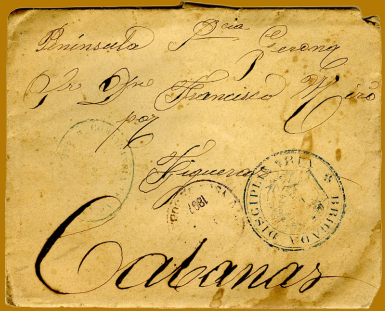 Península Pcia Gerona
Sr Dn Francisco Miró
por
Figueras
Cabanas
BRIGADA DISCIPLINARIA
1897